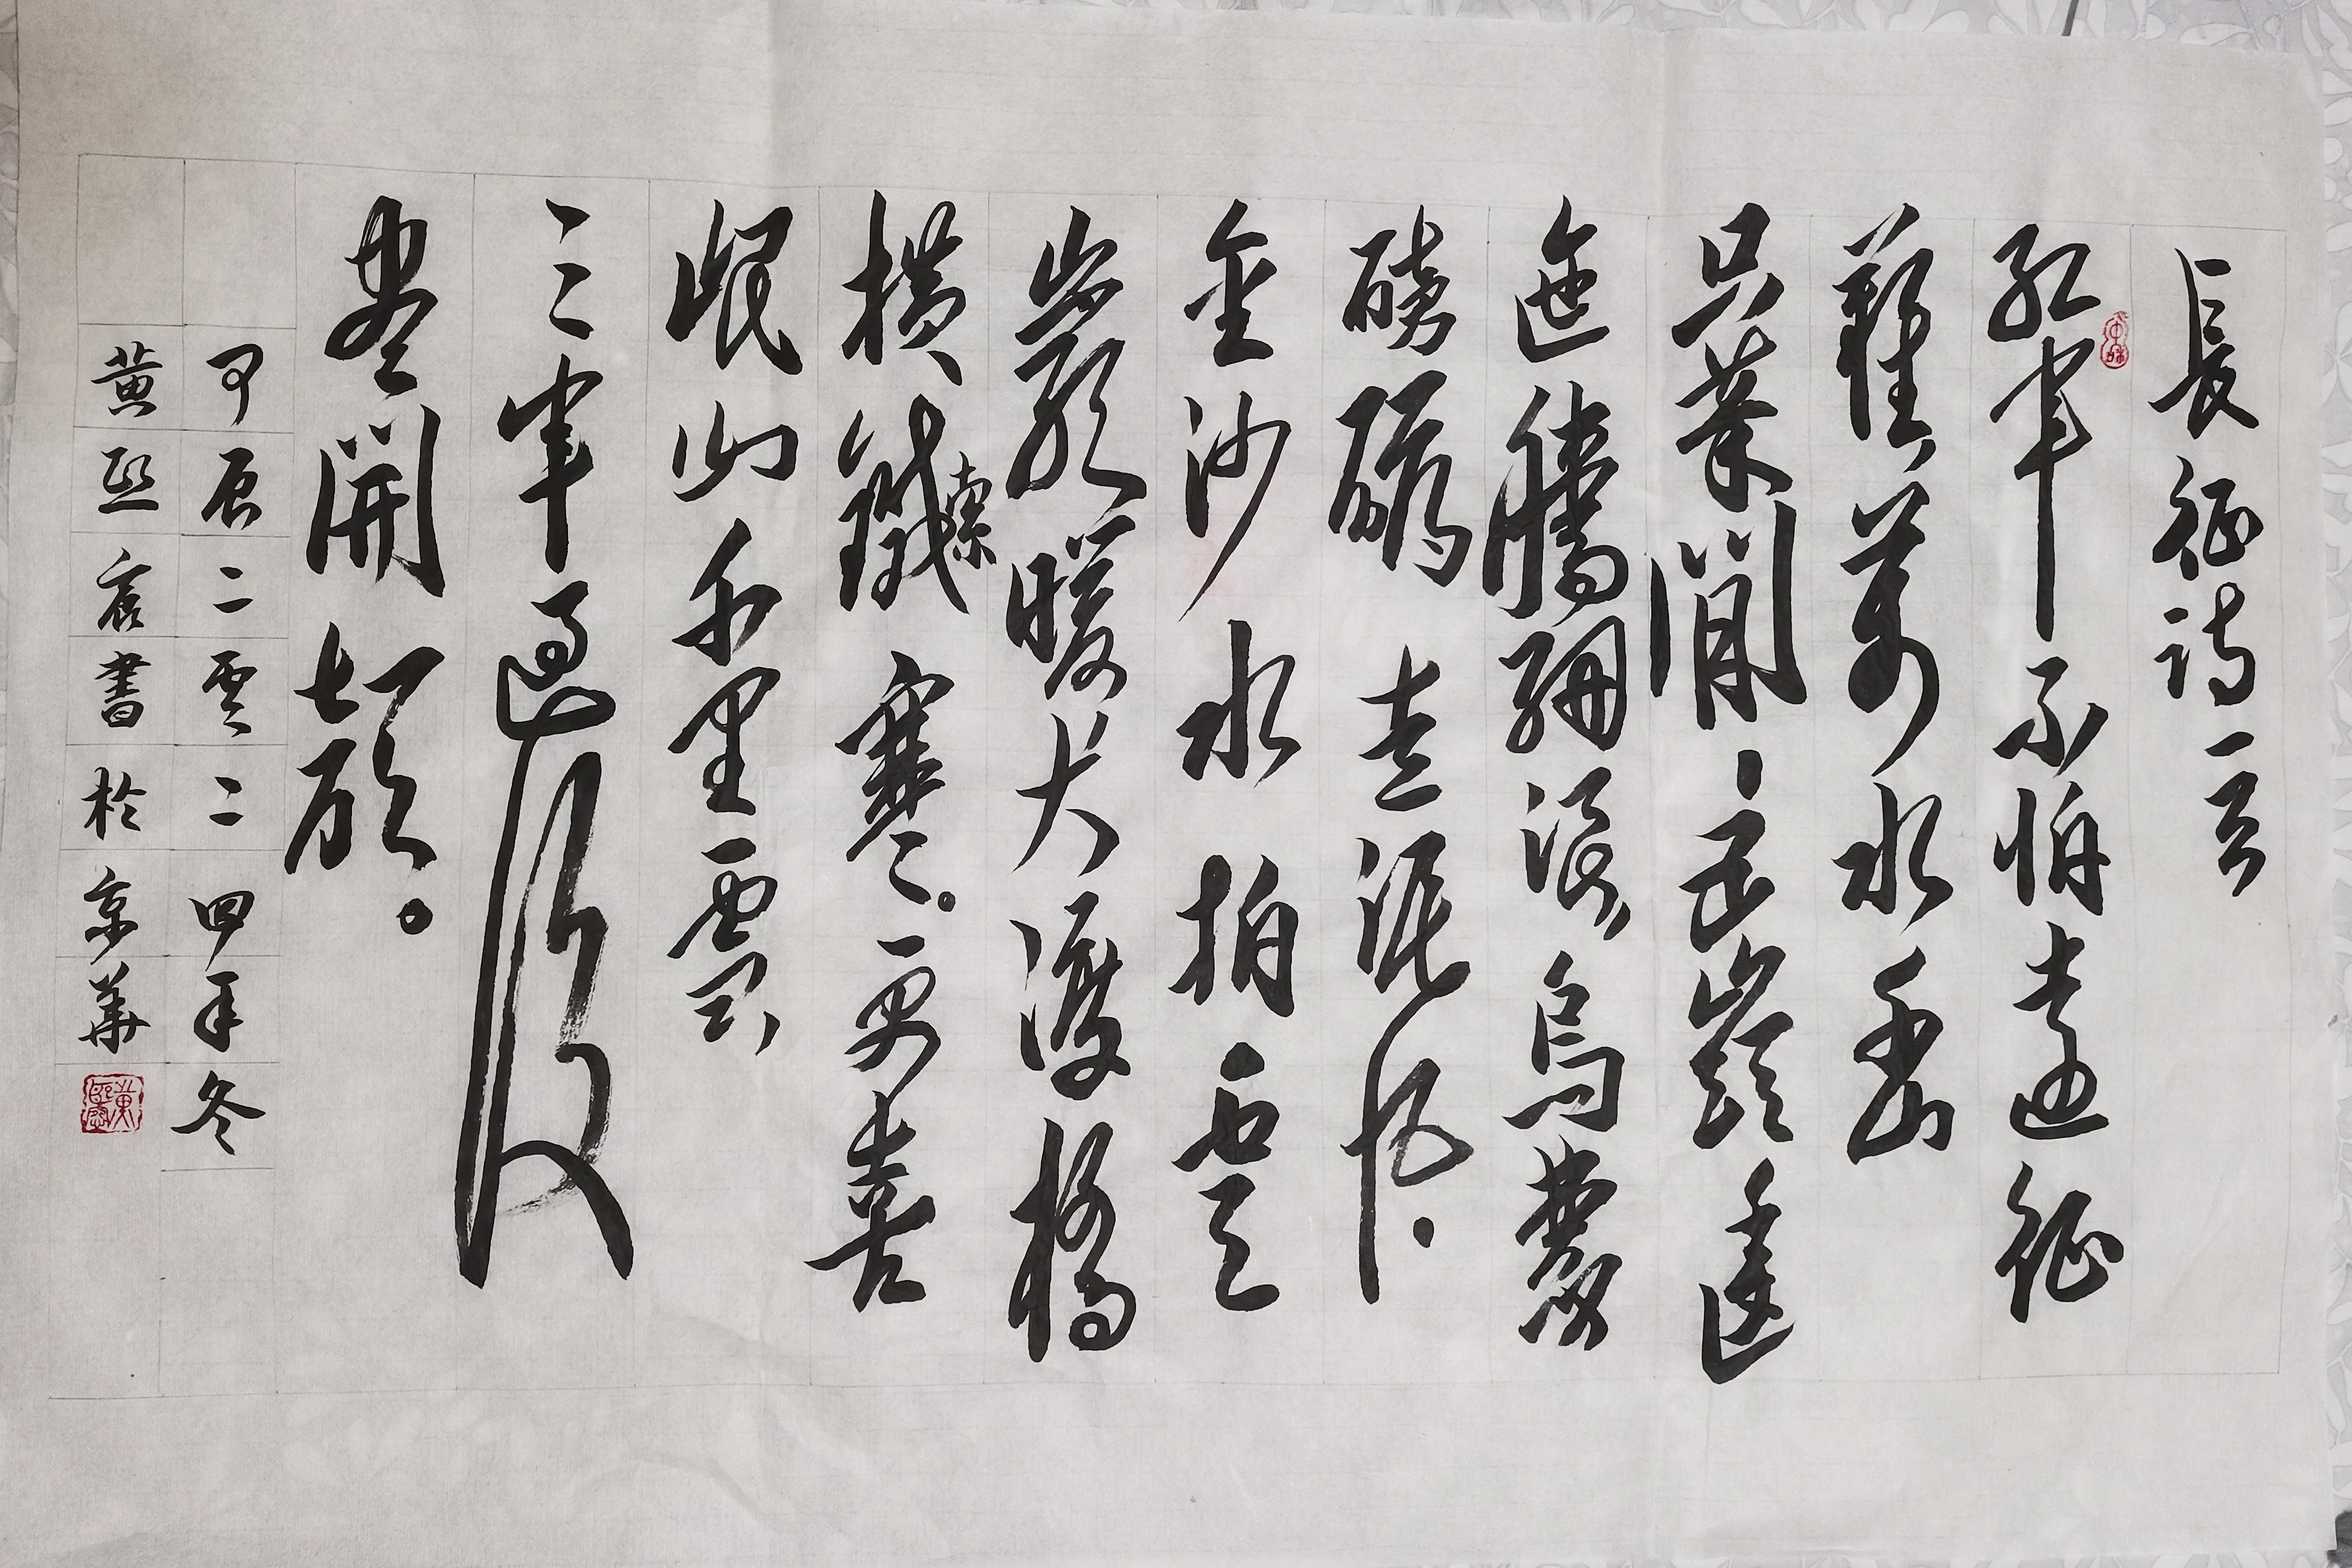 長征詩一首
紅軍不怕遠征
難萬水千山
只等閒、五嶺逶
迤騰細浪烏蒙
磅礴走泥丸.
金沙水拍雲
巖暖大渡橋
橫鐵索寒。更喜
岷山千里雪
三軍過後
盡開顏。
甲辰二零二四年冬
黃熙宸書於京華